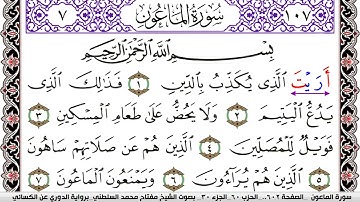 ٧ سُورَةُ الْمَاعُونَ ١٠٧
بِسْمِ اللَّهِ الرَّحْمَٰنِ الرَّحِيمِ
أَرَيْتَ الَّذِى يُكَذِّبُ بِالدِّينِ ١ فَذَٰلِكَ الَّذِى
يَدُعُّ الْيَتِيمَ ٢ وَلَا يَحُضُّ عَلَىٰ طَعَامِ الْمِسْكِينِ ٣
فَوَيْلٌ لِّلْمُصَلِّينَ ٤ الَّذِينَ هُمْ عَن صَلَاتِهِمْ سَاهُونَ
٥ الَّذِينَ هُمْ يُرَآءُونَ ٦ وَيَمْنَعُونَ الْمَاعُونَ ٧
سورة الماعون . الصفحة ٦٠٢ . الحزب ٦٠ . الجزء ٣٠ . بصوت الشيخ مفتاح محمد السلطني برواية الدوري عن الكسائي